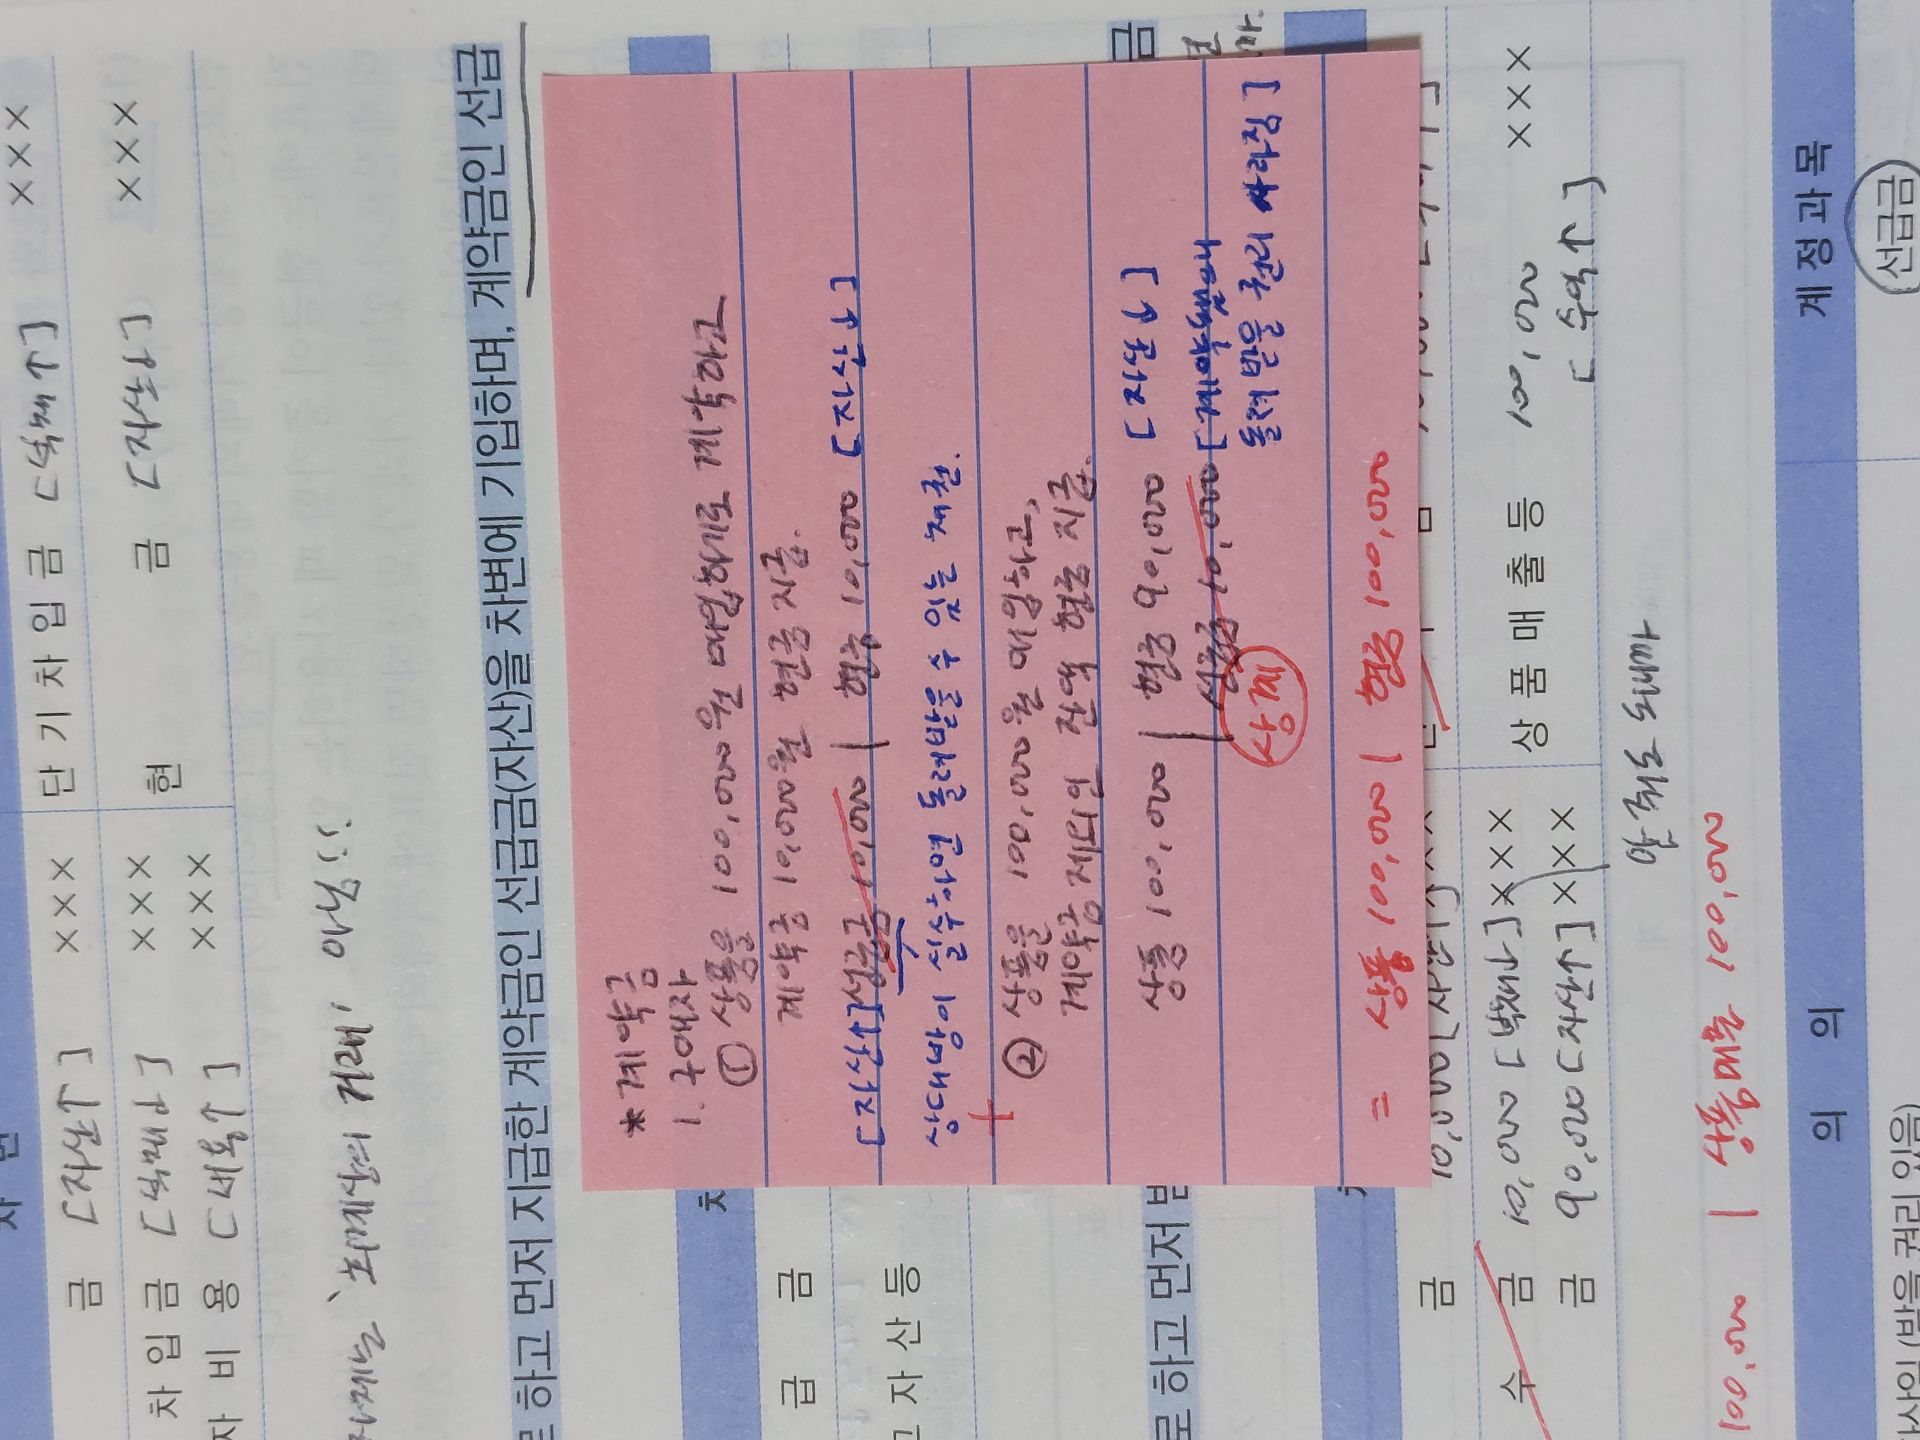 차 변
금 [자산↑] ××× 단 기 차 입 금 [부채↑] ×××
차 입 금 [부채↓] ××× 현 금 [자산↓] ×××
자 비 용 [비용↑] ×××
자체는 '회계상의 거래' 아님!!
로 하고 먼저 지급한 계약금인 선급금(자산)을 차변에 기입하며, 계약금인 선급
* 계약금
1. 구매자
① 상품을 100,000원 매입하기로 계약하고
계약금 10,000원 현금 지급.
[자산↑] 선급금 10,000 | 현금 10,000 [자산↓]
상대방이 실수하면 돌려받을 수 있는 채권.
② 상품을 100,000원 매입하고,
계약금 제외한 잔액 현금 지급.
상품 100,000 | 현금 90,000 [자산↓]
선급금 10,000 [계약금
돌려 받을 권리 사라짐]
상계
= 상품 100,000 | 현금 100,000
급 금
고 자 산 등
로 하고 먼저 받
금
금
수 금 10,000 [부채↓] ××× 상 품 매 출 등 100,000 ×××
금 90,000 [자산↑] ××× [수익↑]
안 줘도 되니까
100,000 | 상품매출 100,000
의 의 계 정 과 목
자산임 (받을 권리 있음) 선급금